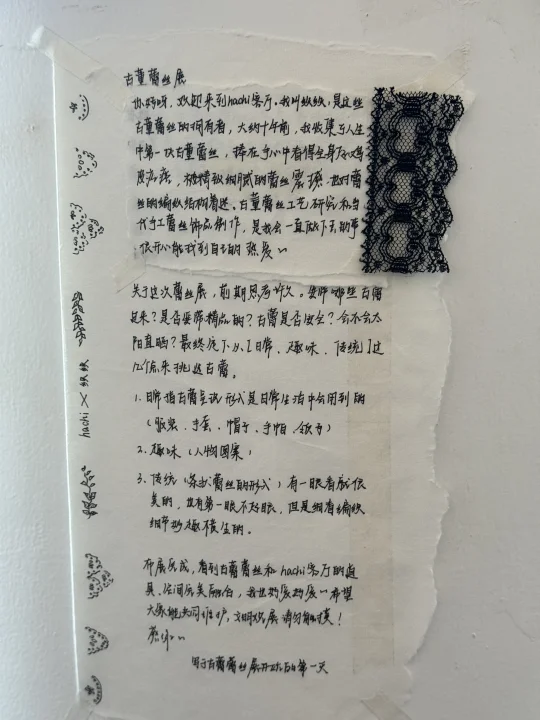 古董蕾丝展
你好呀，欢迎来到hachi客厅。我叫织织，是这些
古董蕾丝的拥有者，大约十年前，我收集了人生
中第一块古董蕾丝，捧在手心中看得全身起鸡
皮疙瘩，被精致细腻的蕾丝震撼，也对蕾
丝的编织结构着迷。古董蕾丝工艺研究和当
代手工蕾丝饰品制作，是我会一直做下去的事
很开心能找到自己的热爱~
关于这次蕾丝展，前期思考许久。要带哪些古蕾
过来？是否要带精品的？古蕾是否安全？会不会太
阳直晒？最终定下从[日常、趣味、传统]这
几个点来挑选古蕾。
1. 日常指古蕾呈现形式是日常生活中会用到的
（服装、手套、帽子、手帕、领子）
2. 趣味（人物图案）
3. 传统（各式蕾丝的形式）有一眼看就很
美的，也有第一眼不好眼，但是细看编织
细节妙趣横生的。
布展完成，看到古董蕾丝和hachi客厅的道
具、空间完美融合，我也
希望
大家能共同维护，文明观展 请勿触摸！
感谢~
写于古董蕾丝展开始的第一天
hachi × 织织